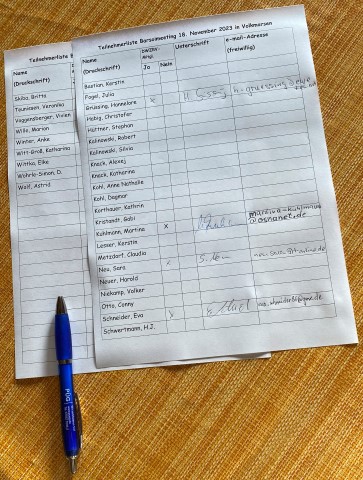 Teilnehmerliste
Name
(Druckschrift)
Skiba, Britta
Teunissen, Veronika
Vaggensberger, Vivien
Wille, Marion
Winner, Anke
Witt-Groß, Katharina
Wittka, Elke
Wöhrle-Simon, D.
Wolf, Astrid
Teilnehmerliste Barsoimeeting 18. November 2023 in Volkmarsen
Name
(Druckschrift)
Ja
Nein
Unterschrift
e-mail-Adresse
(freiwillig)
Bastian, Kerstin
Fogel, Julia
Brüssing, Hannelore
Habig, Christofer
Hüttner, Stephan
Kalinowski, Robert
Kalinowski, Silvia
Knack, Alexej
Knack, Katharina
Kohl, Anne Nathalie
Kohl, Dagmar
Korthauer, Kathrin
Kristandt, Gabi
Kuhlmann, Martina x
@osnanet.de
Lesser, Kerstin
Metzdorf, Claudia
Neu, Sara
Neuer, Harald
Niekamp, Volker
Otto, Conny
Schneider, Eva
Schwertmann, H.J.